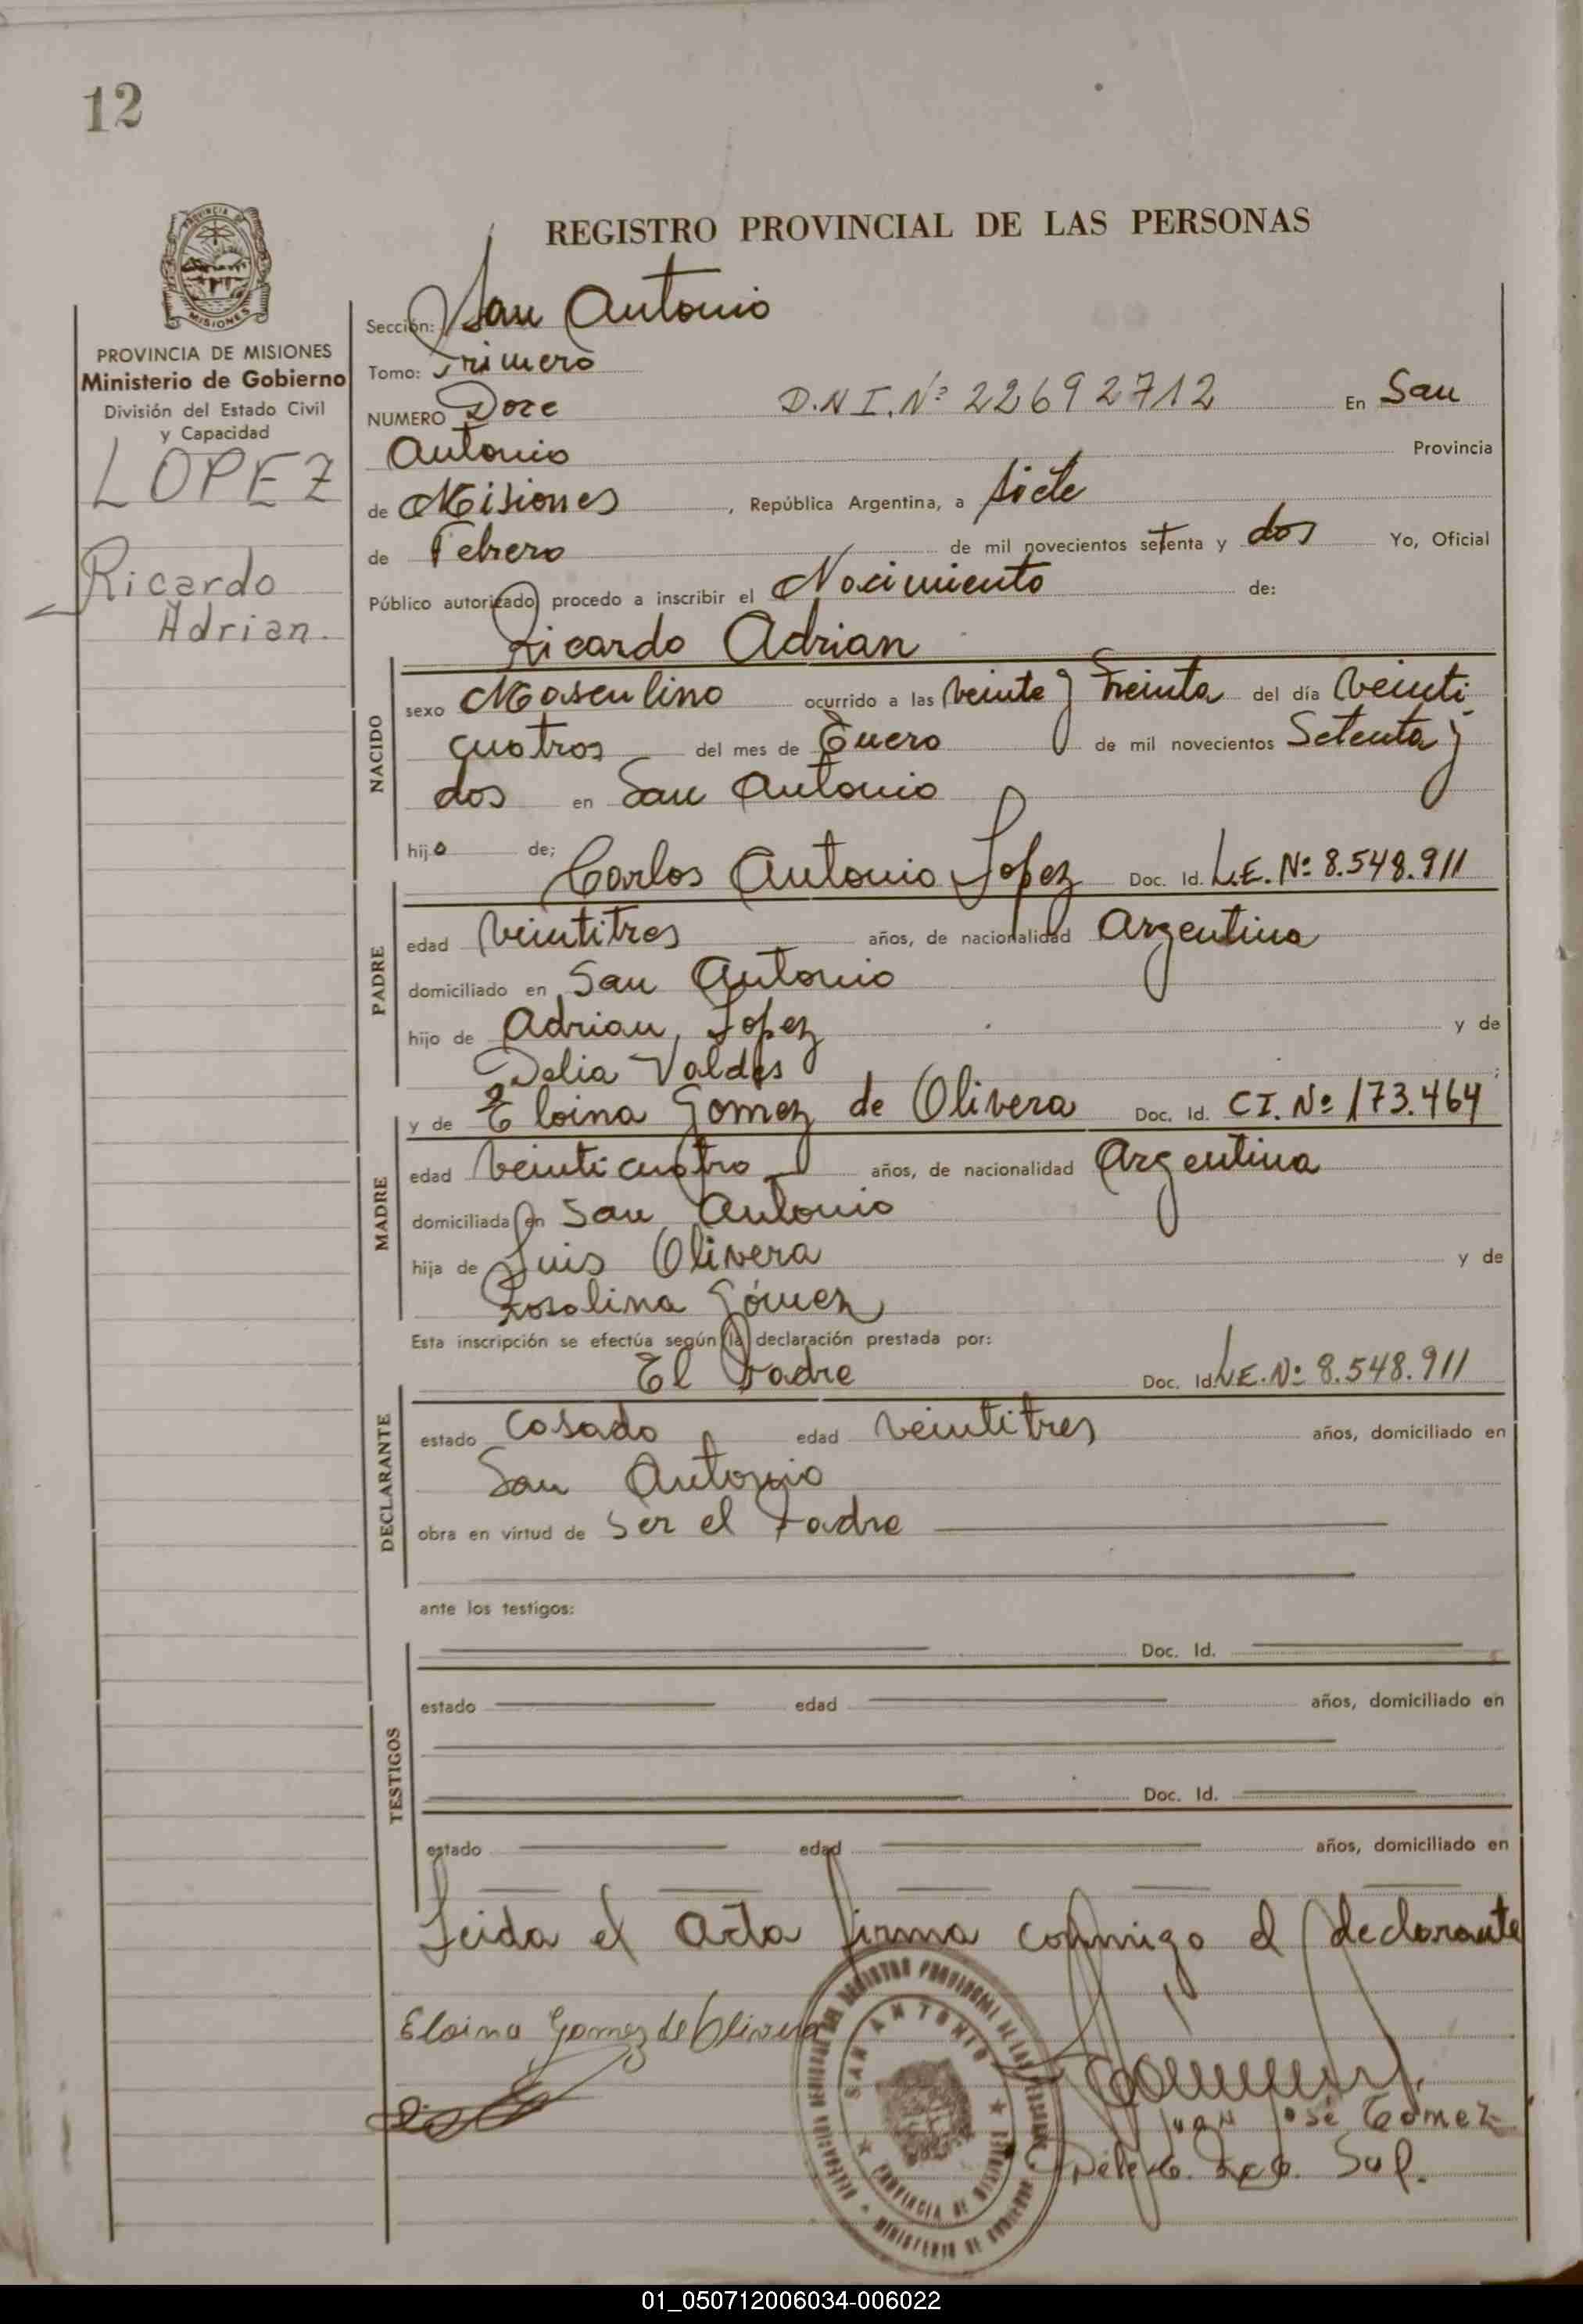 12
REGISTRO PROVINCIAL DE LAS PERSONAS
PROVINCIA DE MISIONES
Ministerio de Gobierno
División del Estado Civil
y Capacidad
LOPEZ
Ricardo
Adrian.
Sección: San Antonio
Tomo: Primero
NUMERO Doce D.N I. Nº 22692712 En San
Antonio Provincia
de Misiones, República Argentina, a siete
de Febrero de mil novecientos setenta y dos Yo, Oficial
Público autorizado procedo a inscribir el Nacimiento de:
Ricardo Adrian
NACIDO
sexo Masculino ocurrido a las veinte y treinta del día veinti
cuatros del mes de Enero de mil novecientos Setenta y
dos en San Antonio
hijo de; Carlos Antonio Lopez Doc. Id. L.E. Nº 8.548.911
PADRE
edad veintitres años, de nacionalidad Argentina
domiciliado en San Antonio
hijo de Adrian Lopez y de
Delia Valdes ;
y de Eloina Gomez de Olivera Doc. Id. CI. Nº 173.464
MADRE
edad veinticuatro años, de nacionalidad Argentina
domiciliada en San Antonio
hija de Luis Olivera y de
Rosalina Gómez
Esta inscripción se efectúa según la declaración prestada por:
El Padre Doc. Id. L.E. Nº 8.548.911
DECLARANTE
estado Casado edad veintitres años, domiciliado en
San Antonio
obra en virtud de Ser el Padre
ante los testigos:
TESTIGOS
Doc. Id.
estado edad años, domiciliado en
Doc. Id.
estado edad años, domiciliado en
Leida el Acta firma conmigo el declarante
Eloina Gomez de Olivera
SAN ANTONIO
PROVINCIA DE MISIONES
MINISTERIO DE GOBIERNO
Juan José Gomez
Sup.
01_050712006034-006022